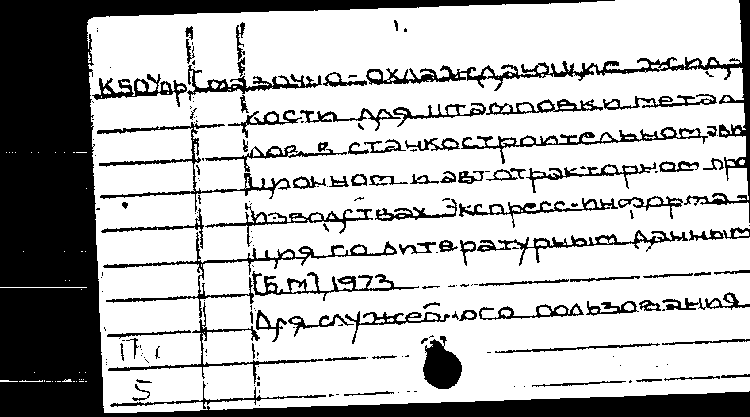 1.
К50Упр Смазочно-охлаждающие жид-
кости для штамповки метал
лов в станкостроительном, ави
ционном и автотракторном про
изводствах Экспресс-информа-
ция по литературным данным
[Б.М], 1973
Для служебного пользования
5